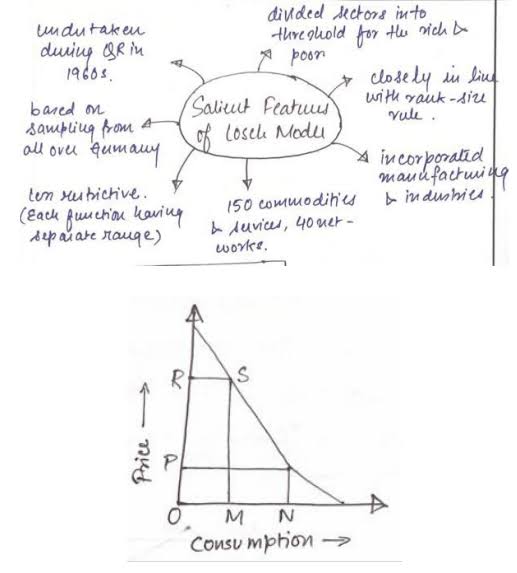 undertaken
during QR in
1960s.
divided sectors into
threshold for the rich &
poor
closely in line
with rank-size
rule.
Salient Features
of Losch Model
based on
sampling from
all over Germany
incorporated
manufacturing
& industries.
less restrictive.
(Each function having
separate range)
150 commodities
& services, 40 net-
works.
R
S
P
Price →
O
M
N
Consumption →